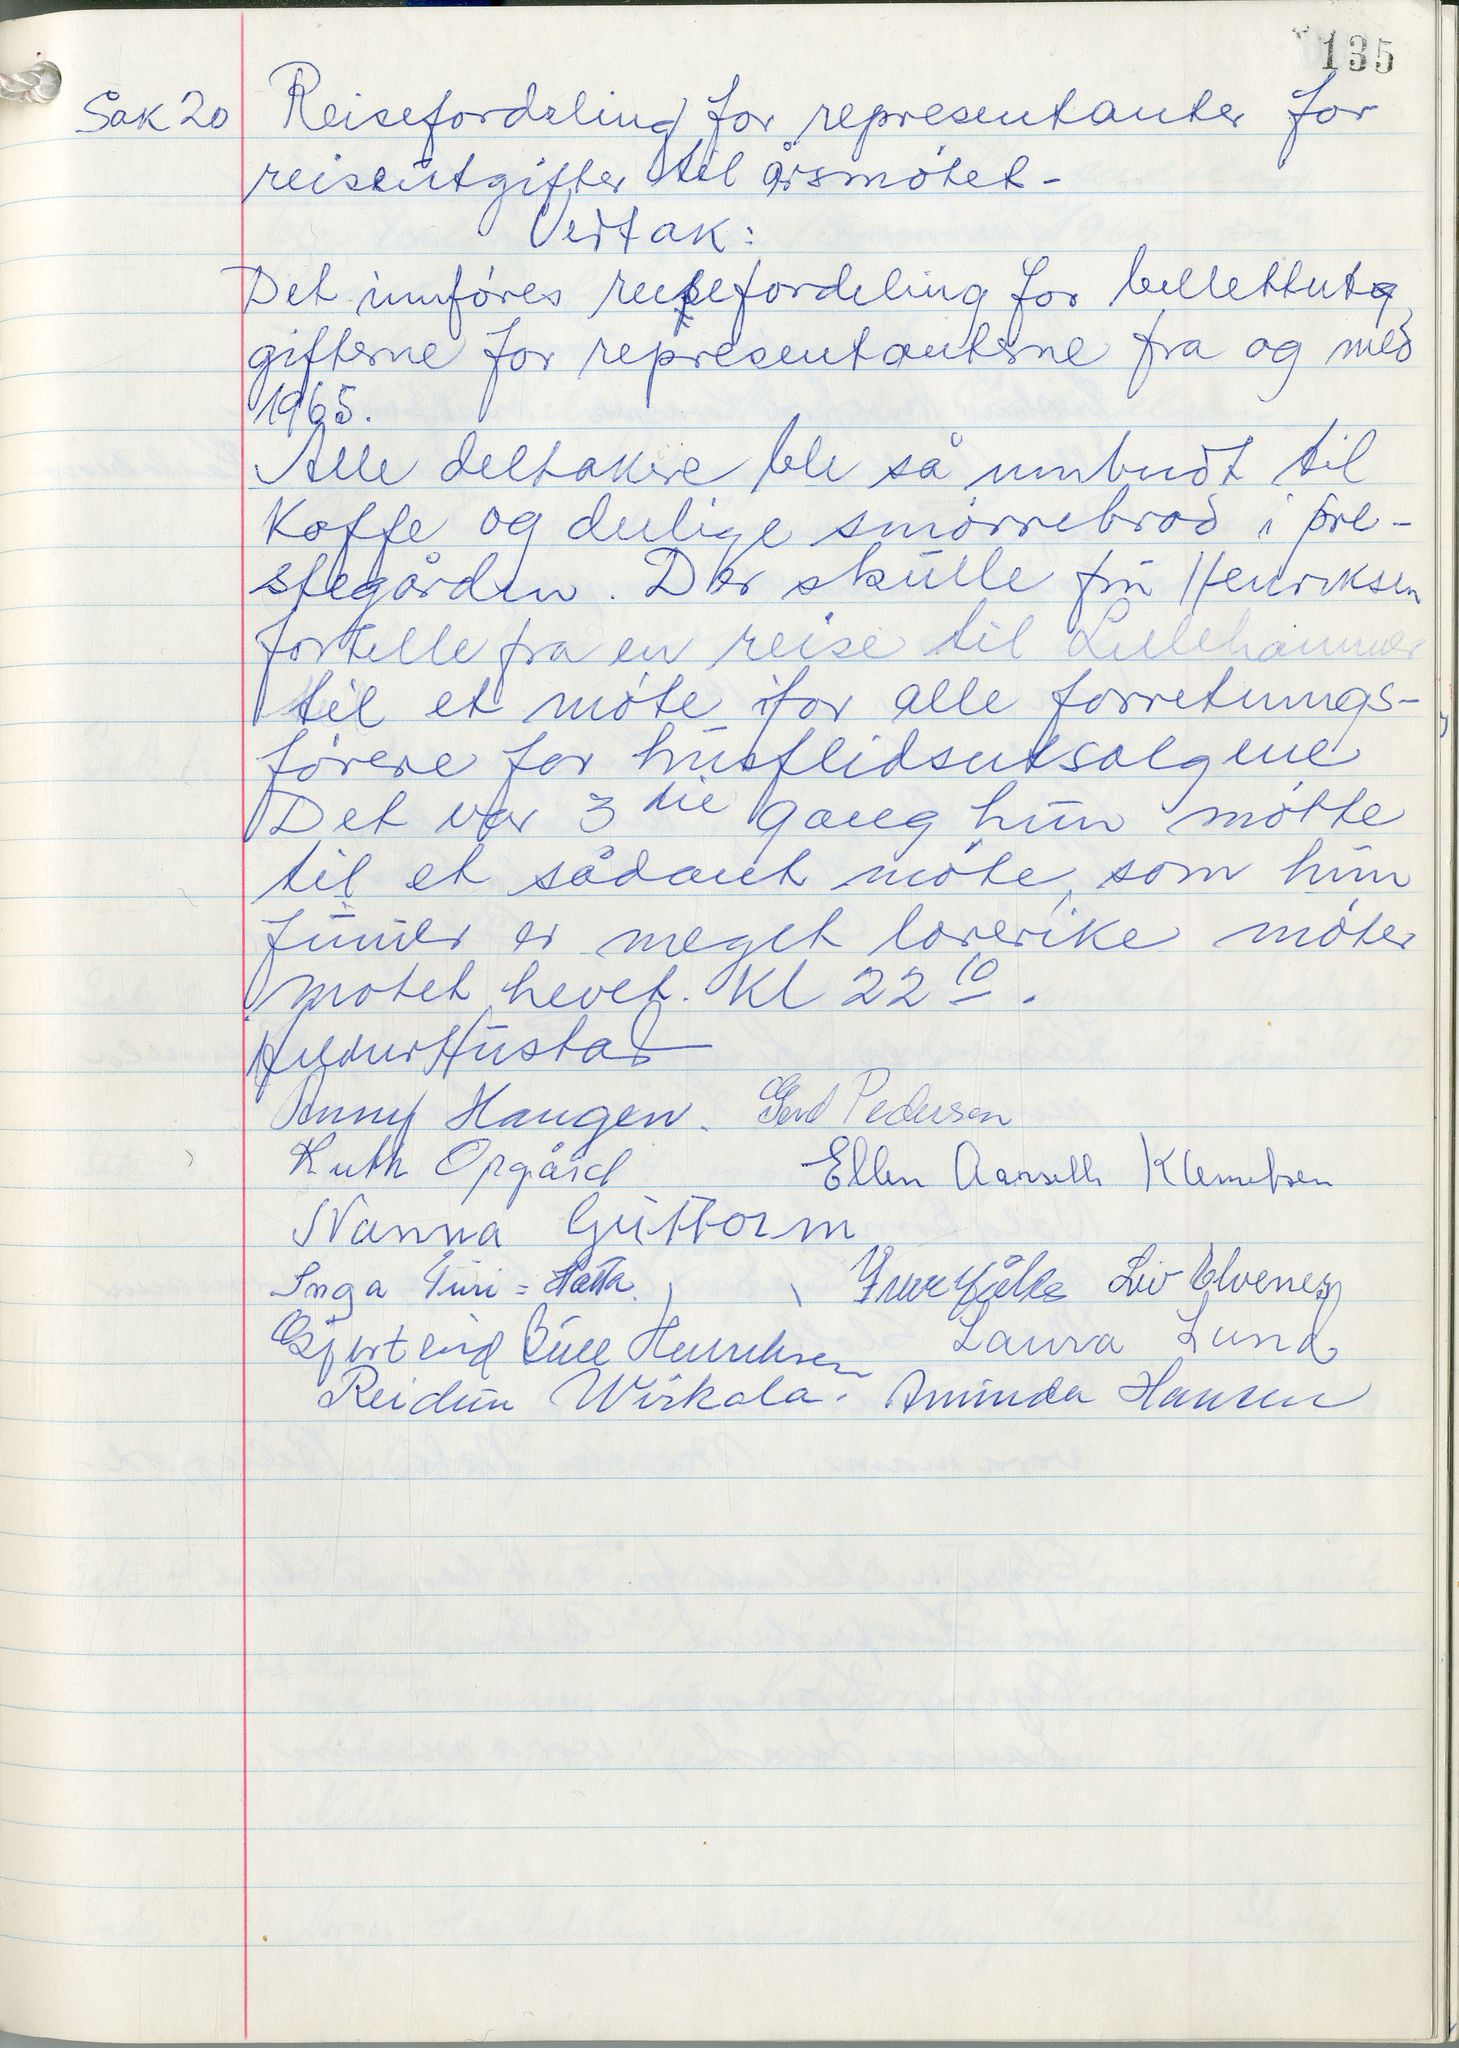 135
Sak 20 Reisefordeling for representanter for
reiseutgifter til årsmötet -
Vedtak:
Det innföres reisefordeling for billettutg
gifterne for representanterne fra og med
1965.
Alle deltakere ble så innbudt til
Kaffe og deilige smörrebröd i pre-
stegården. Der skulle frü Henriksen
fortelle fra en reise til Lillehammer
til et möte for alle forretnings-
förere for husflidsutsalgene
Det var 3 die gang hun mötte
til et sådant möte, som hun
finner er meget lærerike möter
mötet hevet. Kl 22 10.
Hustad
Anny Haugen. Gerd Pedersen
Ruth Opgård Ellen Aarseth Klemetsen
Nanna Guttorm
Inga Turi = Hætta. Liv Elvenes
Gjertrud Bull Henriksen Laura Lund
Reidun Wirkola. Aminda Hansen